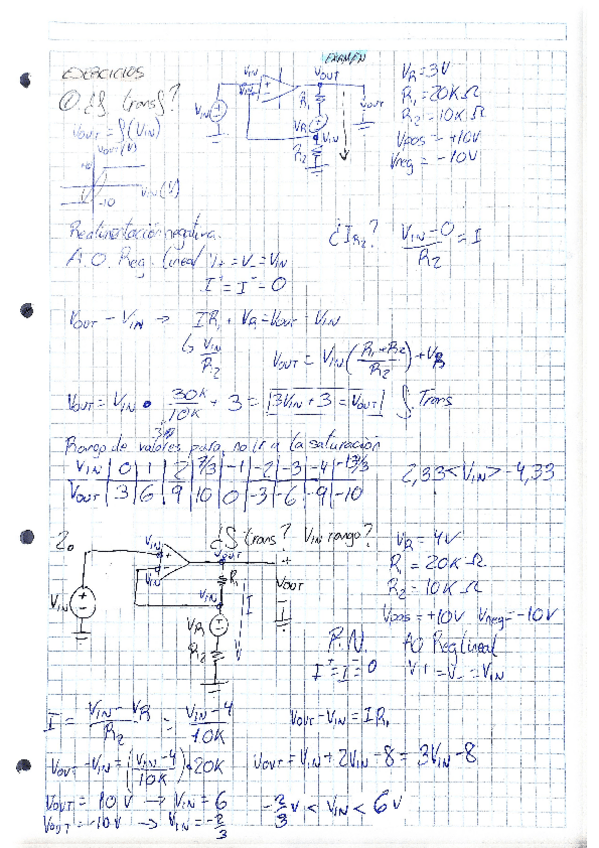 EXAMEN
EJERCICIOS
① ¿f trans?
Vout = f(VIN)
Vout(V)
+10
VIN(V)
-10
VIN
Vout
VIN
R1
VR
VIN
R2
Vout
VR = 3V
R1 = 20KΩ
R2 = 10KΩ
Vpos = +10V
Vneg = -10V
Realimentación negativa.
A.O. Reg. lineal V+ = V- = VIN
I+ = I- = 0
¿IR2? (VIN-0)/R2 = I
Vout - VIN → IR1 + VR = Vout - VIN
↳ VIN/R2
Vout = VIN((R1+R2)/R2) + VR
Vout = VIN · 30K/10K + 3 = 3VIN + 3 = Vout f. Trans
Rango de valores para no ir a la saturación
VIN | 0 | 1 | 2 | 7/3 | -1 | -2 | -3 | -4 | -13/3
Vout | 3 | 6 | 9 | 10 | 0 | -3 | -6 | -9 | -10
2,33 < VIN > -4,33
2.
¿f trans? VIN rango?
VIN
VIN
Vout
+
R1
I
VIN
VIN
VR
R2
Vout
-
VR = 4V
R1 = 20KΩ
R2 = 10KΩ
Vpos = +10V Vneg = -10V
R.N. AO Reg lineal
I+ = I- = 0 V+ = V- = VIN
I = (VIN - VR)/R2 = (VIN-4)/10K
Vout - VIN = IR1
Vout - VIN = ((VIN-4)/10K) · 20K
Vout = VIN + 2VIN - 8 = 3VIN - 8
Vout = 10V → VIN = 6
Vout = -10V → VIN = -2/3
-2/3 V < VIN < 6V